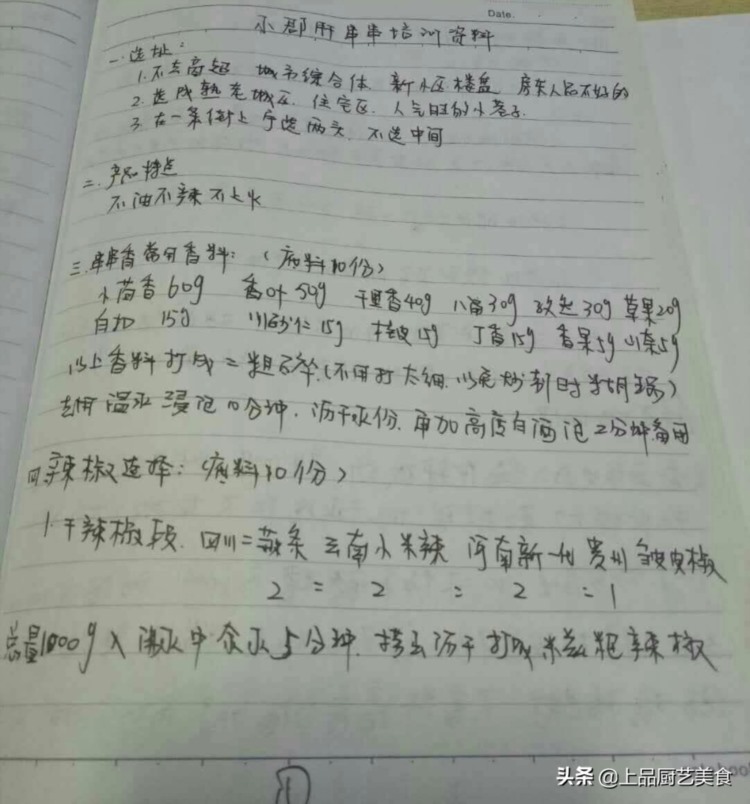 Date.
小郡肝串串培训资料
一.选址:
1.不去高超 城市综合体 新小区楼盘 房东人品不好的
2.选成熟老城区. 住宅区. 人气旺的小巷子.
3.在一条街上宁选两头 不选中间
二.产品特点
不油不辣不上火
三.串串香常用香料:(底料10份)
小茴香60g 香叶50g 千里香40g 八角30g 孜然30g 草果20g
白扣 15g 砂仁15g 桂皮15g 丁香15g 香果5g 山奈5g
以上香料打成二粗碎.(不用打太细.以免炒制时糊锅)
去用温水浸泡10分钟.沥干水份.再加高度白酒泡2分钟备用
四辣椒选择:(底料10份)
1.干辣椒段. 四川二荆条 云南小米辣 河南新一代 贵州皱皮椒
2 = 2 = 2 = 1
总量1000g入沸水中汆水5分钟.捞出沥干打成糍粑辣椒
①
头条 @上品厨艺美食